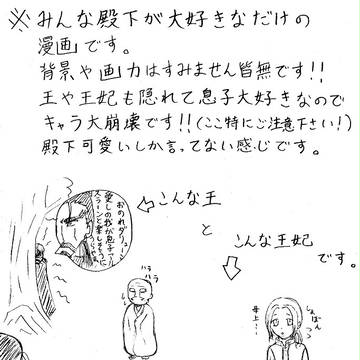 ※みんな殿下が大好きなだけの
漫画です。
背景や画力はすみません皆無です!!
王や王妃も隠れて息子大好きなので
キャラ大崩壊です!!(ここ特にご注意下さい!)
殿下可愛いしか言ってない感じです。
←こんな王
と
こんな王妃
です。
おのれダリューン
愛しの我が息子アル
スラーンと楽しそうに
ハラ
ハラ
母上…